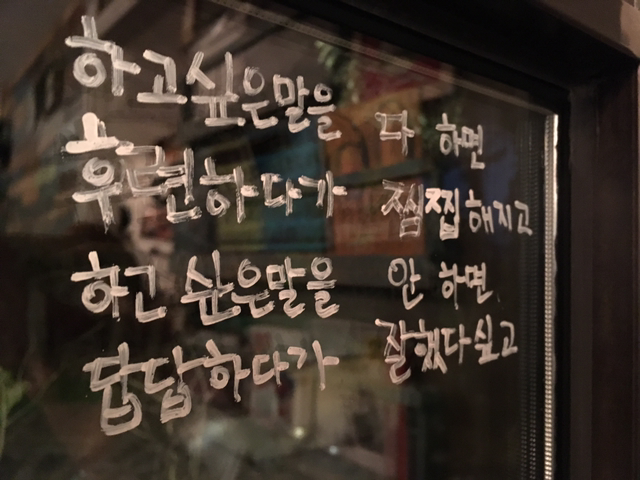 하고싶은말을 다 하면
후련하다가 찜찝해지고
하고 싶은말을 안 하면
답답하다가 잘했다싶고